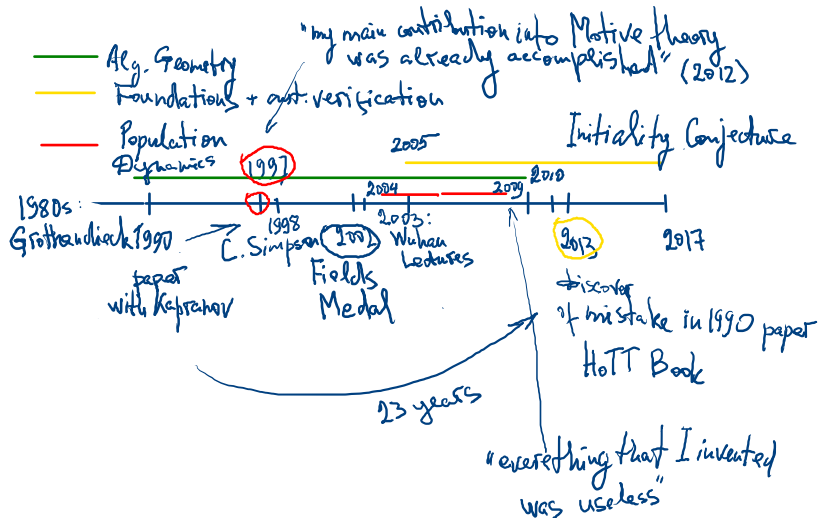 "my main contribution into Motive theory
was already accomplished" (2012)
Alg. Geometry
Foundations + aut. verification
Population
Dynamics
1997
2005
Initiality Conjecture
2010
2004
2009
1980s:
Grothendieck
1990
1998
C. Simpson
2002
2003:
Wuhan
Lectures
2013
2017
paper
with Kapranov
Fields
Medal
discover
of mistake in 1990 paper
HoTT Book
23 years
"everething that I invented
was useless"